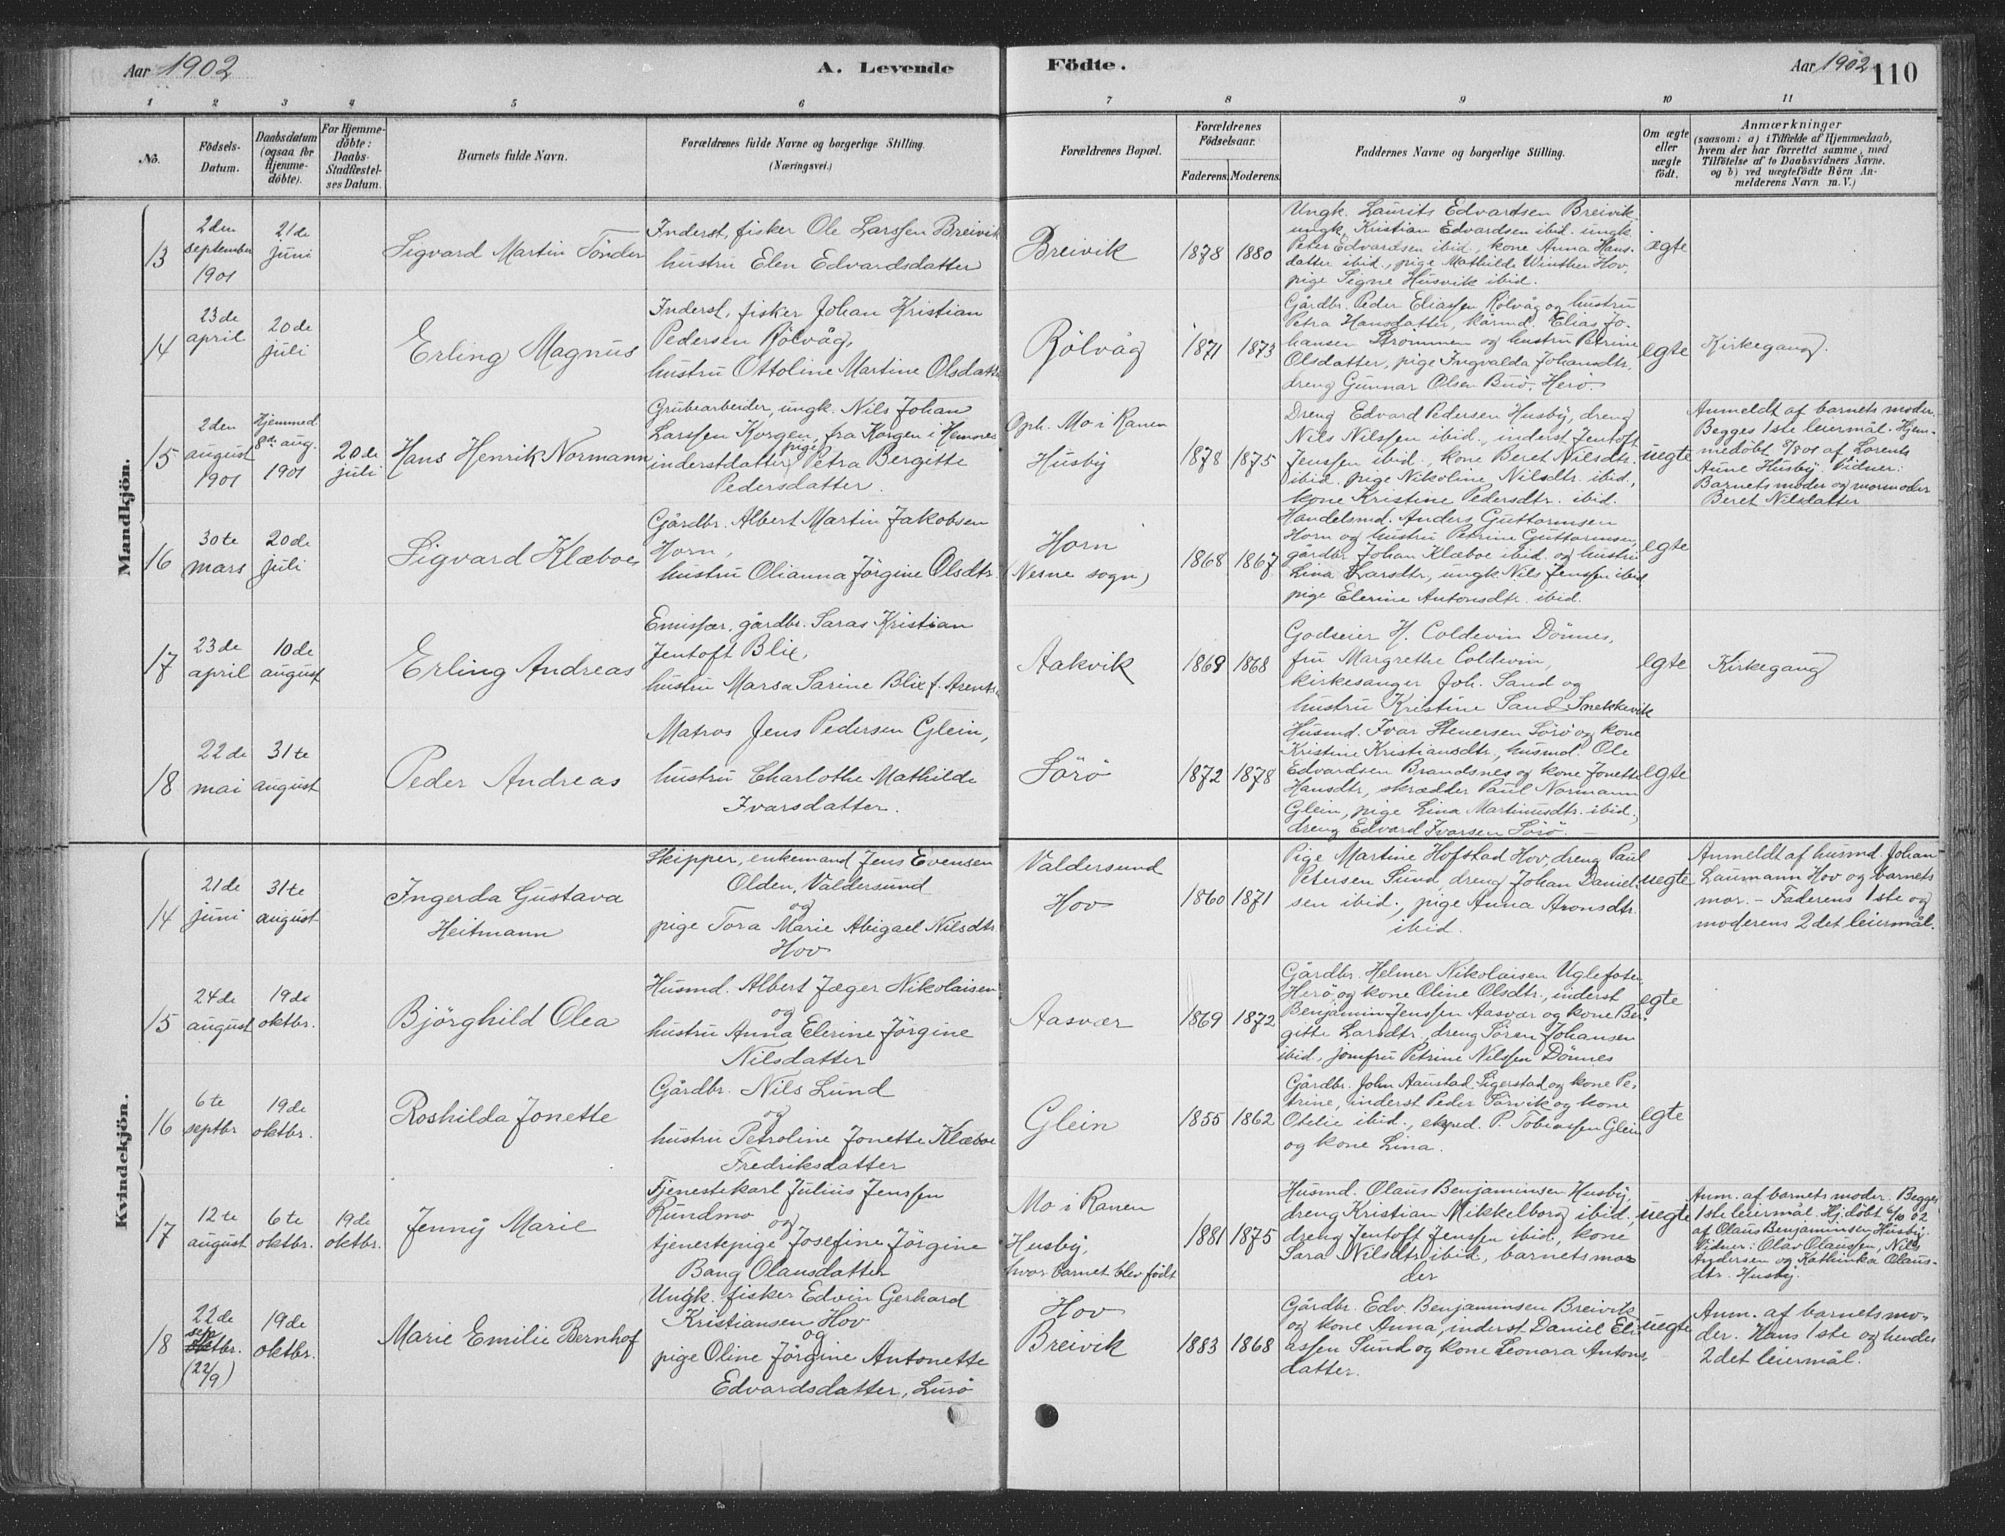 Aar 1902
A. Levende
Födte.
Aar 1902
110
1 2 3 4 5 6 7 8 9 10 11
No.
Födsels-
Datum.
Daabsdatum
(ogsaa for
Hjemme-
döbte).
For Hjemme-
döbte:
Daabs-
Stadfæstel-
ses Datum.
Barnets fulde Navn.
Forældrenes fulde Navne og borgerlige Stilling.
(Næringsvei.)
Forældrenes Bopæl.
Forældrenes
Födselsaar.
Faderens. Moderens.
Faddernes Navne og borgerlige Stilling.
Om ægte
eller
uægte
födt.
Anmærkninger
(saasom: a) i Tilfælde af Hjemmedaab,
hvem der har forrettet samme, med
Tilföielse af to Daabsvidners Navne,
og b) ved uægtefödte Börn An-
melderens Navn m. V.)
Mandkjön.
13
2den
september
1901
21de
juni
Sigvard Martin Tönder
Inderst, fisker Ole Larssen Breivik
hustru Elen Edvardsdatter
Breivik
1878 1880
Ungk. Laurits Edvardsen Breivik
ungk. Kristian Edvardsen ibid. ungk.
Peter Edvardsen ibid., kone Anna Hans-
datter ibid., pige Mathilde Winther Hov,
pige Signe Husvik ibid.
ægte
14
23de
april
20de
juli
Erling Magnus
Inderst, fisker Johan Kristian
Pedersen Rölvåg,
hustru Ottoline Martine Olsdatter
Rölvåg
1871 1873
Gårdbr. Peder Eliassen Rölvåg og hustru
Petra Hansdatter, kårmd. Elias Jo-
hansen Strömmen og hustru Petrine
Olsdatter, pige Ingvalda Johansdtr.
dreng Gunnar Olsen Buö, Herö.
egte
Kirkegang.
15
2den
august
1901
Hjemmed.
8de aug.
1901
20de
juli
Hans Henrik Normann
Grubearbeider, ungk. Nils Johan
Larssen Korgen, fra Korgen i Hemnes
pige
inderstdatter Petra Bergitte
Pedersdatter.
Oph. Mo i Ranen
Husby
1878 1875
Dreng Edvard Pedersen Husby, dreng
Nils Nilssen ibid., inderst Jentoft
Jenssen ibid., kone Beret Nilsdtr.
ibid. pige Nikoline Nilsdtr. ibid.,
kone Kristine Pedersdtr. ibid.
uegte
Anmeldt af barnets moder.
Begges 1ste leiermål. Hjem-
medöbt 8/8 01 af Lorents
Aune Husby. Vidner:
Barnets moder og mormoder
Beret Nilsdatter
16
30te
mars
20de
juli
Sigvard Klæboe
Gårdbr. Albert Martin Jakobsen
Horn,
hustru Olianna Jörgine Olsdtr.
Horn
(Nesne sogn)
1868 1867
Handelsmd. Anders Guttormsen
Horn og hustru Petrine Guttormsen,
gårdbr. Johan Klæboe ibid. og hustru
Lina Larsdtr., ungk. Nils Jenssen ibid.
pige Elerine Antonsdtr. ibid.
egte
17
23de
april
10de
august
Erling Andreas
Emissær, gårdbr. Saras Kristian
Jentoft Blix,
hustru Marsa Sarine Blix f. Arentsen
Aakvik
1869 1868
Godseier H. Coldevin Dönnes,
fru Margrethe Coldevin,
kirkesanger Joh. Sand og
hustru Kristine Sand Snekkevik
egte
Kirkegang
18
22de
mai
31te
august
Peder Andreas
Matros Jens Pedersen Glein,
hustru Charlothe Mathilde
Ivarsdatter.
Sörö
1872 1878
Husmd. Ivar Stenersen Sörö og kone
Kristine Kristiansdtr., husmd. Ole
Edvardsen Brandsnes og kone Jonette
Hansdtr., skrædder Paul Normann
Glein, pige Lina Martinusdtr. ibid.,
dreng Edvard Ivarsen Sörö.
egte
Kvindekjön.
14
21de
juni
31te
august
Ingerda Gustava
Heitmann
Skipper, enkemand Jens Evensen
Olden, Valdersund
og
pige Tora Marie Abigael Nilsdtr.
Hov
Valdersund
Hov
1860 1871
Pige Martine Hofstad Hov, dreng Paul
Petersen Sund, dreng Johan Daniel-
sen ibid., pige Anna Aronsdtr.
ibid.
uegte
Anmeldt af husmd. Johan
Laumann Hov og barnets
mor. - Faderens 1ste og
moderens 2det leiermål.
15
24de
august
19de
oktbr.
Björghild Olea
Husmd. Albert Jæger Nikolaisen
og
hustru Anna Elerine Jörgine
Nilsdatter
Aasvær
1869 1872
Gårdbr. Helmer Nikolaisen Uglefote
Herö og kone Oline Olsdtr., inderst
Benjamin Jenssen Aasvær og kone Ber-
gitte Larsdtr., dreng Sören Johansen
ibid., jomfru Petrine Nilssen Dönnes
egte
16
6te
septbr.
19de
oktbr.
Roshilda Jonette
Gårdbr. Nils Lund
og
hustru Petroline Jonette Klæboe
Fredriksdatter
Glein
1855 1862
Gårdbr. John Aanstad Sigerstad og kone Pe-
trine, inderst Peder Sörvik og kone
Otelie ibid., eksped. P. Tobiassen Glein
og kone Lina.
egte
17
12te
august
6te
oktbr.
19de
oktbr.
Jenny Marie
Tjenestekarl Julius Jenssen
Rundmo
og
tjenestepige Josefine Jörgine
Bang Olausdatter
Mo i Ranen
Husby,
hvor barnet blev födt
1881 1875
Husmd. Olaus Benjaminsen Husby,
dreng Kristian Mikkelborg ibid.,
dreng Jentoft Jenssen ibid., kone
Sara Nilsdtr. ibid., barnets mo-
der
uegte
Anm. af barnets moder. Begges
1ste leiermål. Hj.döbt 6/10 02
af Olaus Benjaminsen Husby.
Vidner: Olav Olaussen, Nils
Andersen og Kathinka Olaus-
dtr. Husby.
18
22de
sep
oktbr.
(22/9)
19de
oktbr.
Marie Emilie Bernhof
Ungk. fisker Edvin Gerhard
Kristiansen Hov
og
pige Oline Jörgine Antonette
Edvardsdatter, Lurö
Hov
Breivik
1883 1868
Gårdbr. Edv. Benjaminsen Breivik
og kone Anna, inderst Daniel Eli-
assen Sund og kone Leonora Antons-
datter.
uegte
Anm. af barnets mo-
der. Hans 1ste og hendes
2det leiermål.